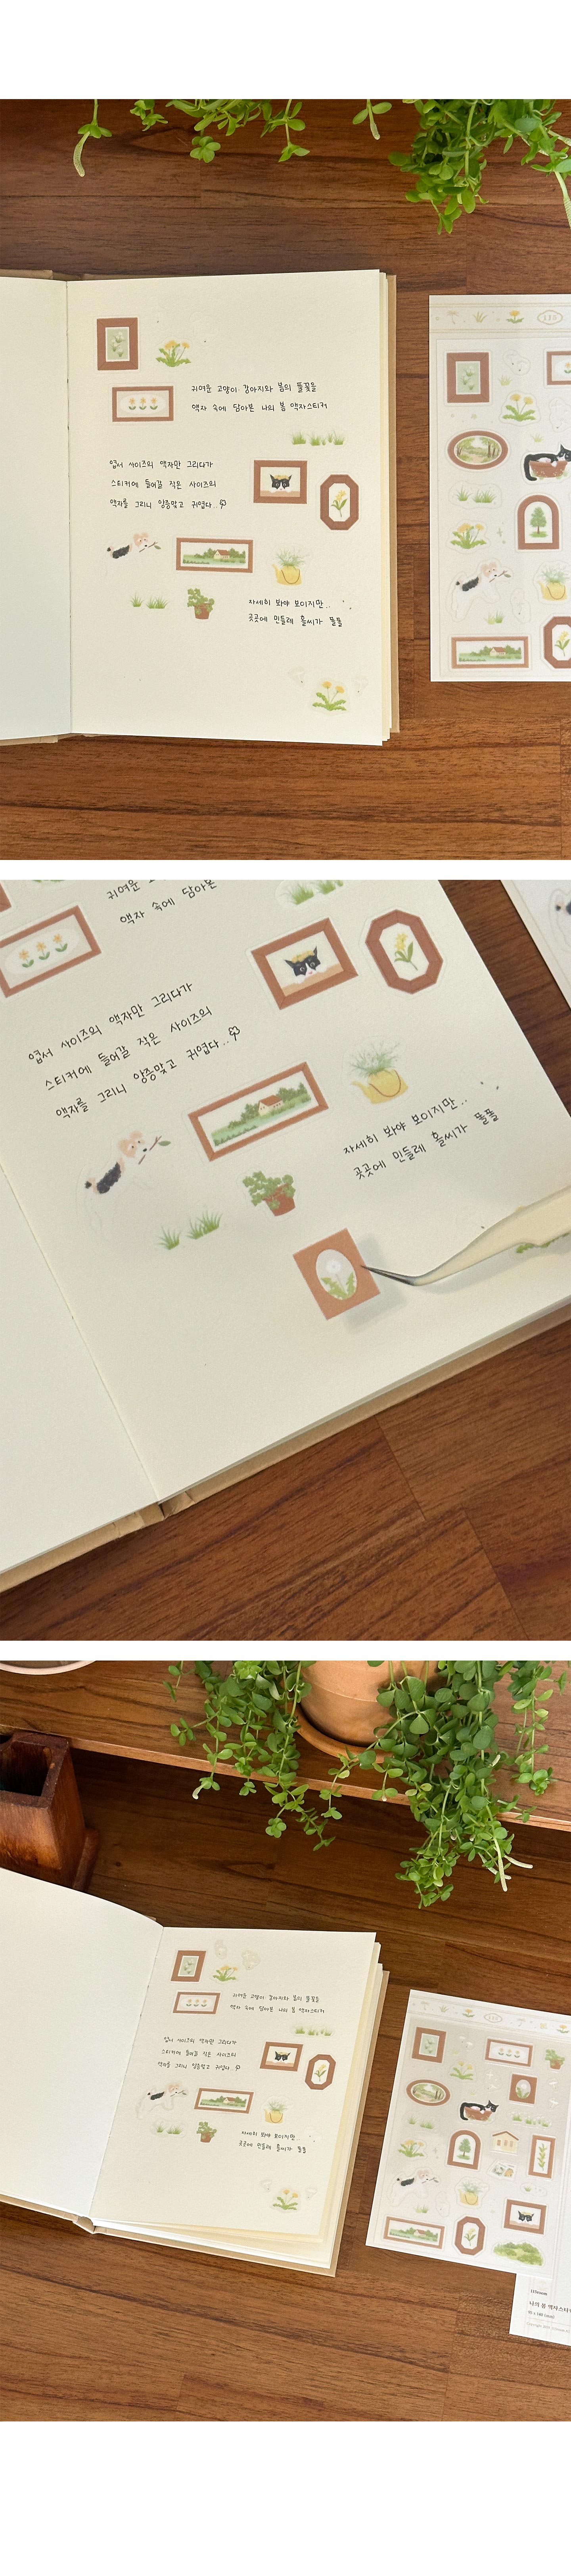 귀여운 고양이·강아지와 봄의 풀꽃을
액자 속에 담아본 나의 봄 액자스티커
엽서 사이즈의 액자만 그리다가
스티커에 들어갈 작은 사이즈의
액자를 그리니 앙증맞고 귀엽다..
자세히 봐야 보이지만..
곳곳에 민들레 홀씨가 풀풀
귀여운
액자 속에 담아본
엽서 사이즈의 액자만 그리다가
스티커에 들어갈 작은 사이즈의
액자를 그리니 앙증맞고 귀엽다..
자세히 봐야 보이지만..
곳곳에 민들레 홀씨가 풀풀
귀여운 고양이·강아지와 봄의 풀꽃을
액자 속에 담아본 나의 봄 액자스티커
엽서 사이즈의 액자만 그리다가
스티커에 들어갈 작은 사이즈의
액자를 그리니 앙증맞고 귀엽다..
자세히 봐야 보이지만..
곳곳에 민들레 홀씨가 풀풀
나의 봄 액자스티